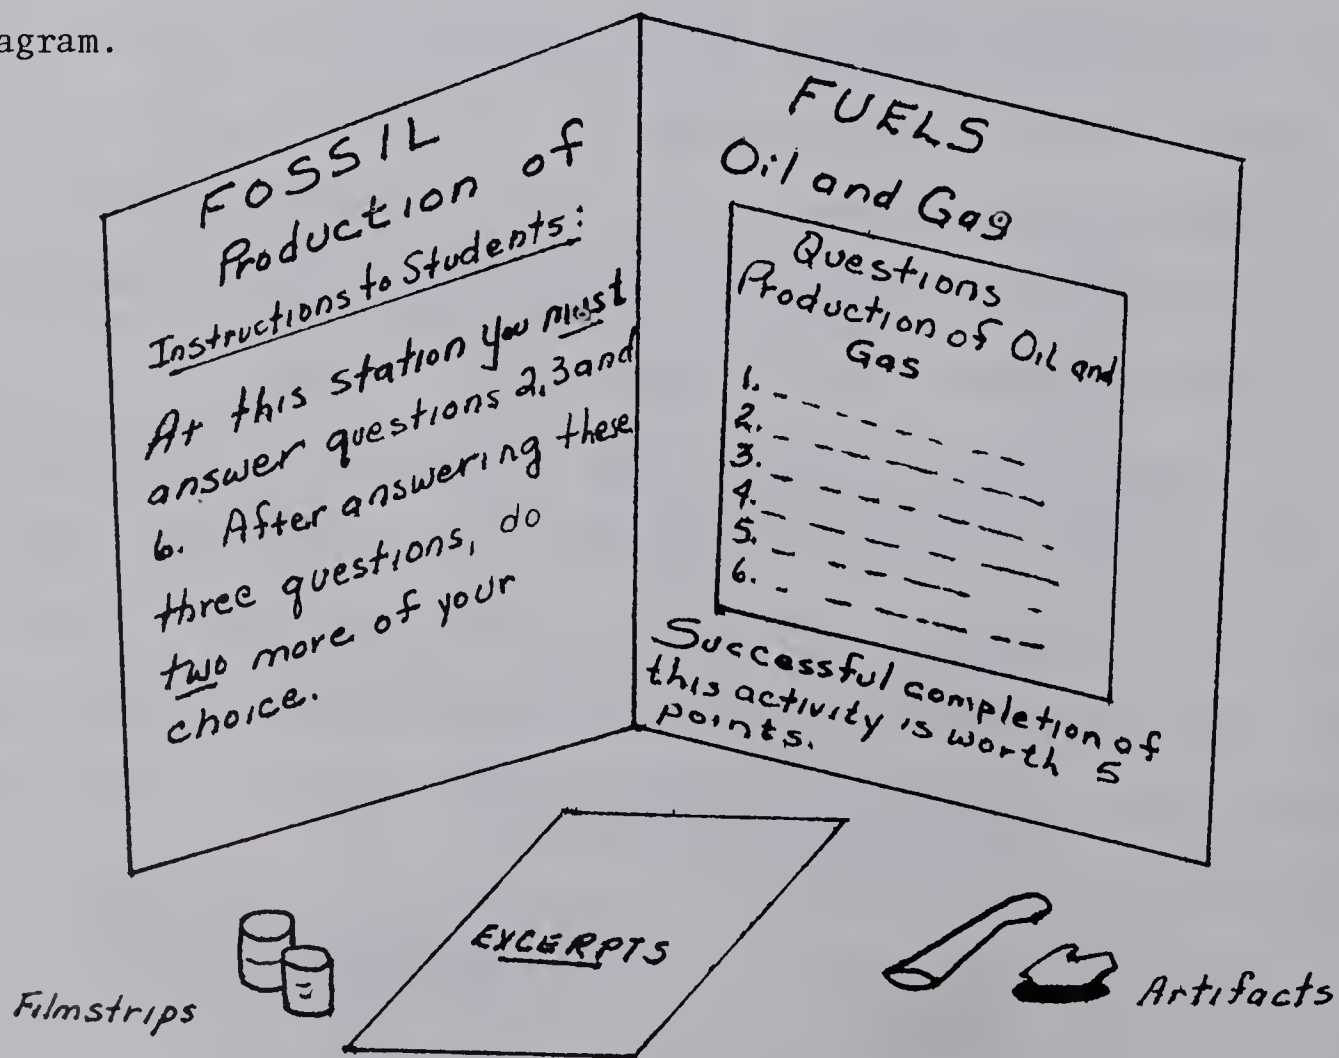 agram.
FOSSIL
Production of
Instructions to Students:
At this station you must
answer questions 2,3 and
6. After answering these
three questions, do
two more of your
choice.
FUELS
Oil and Gag
Questions
Production of Oil and
Gas
1.
2.
3.
4.
5.
6.
Successful completion of
this activity is worth 5
points.
Filmstrips
EXCERPTS
Artifacts